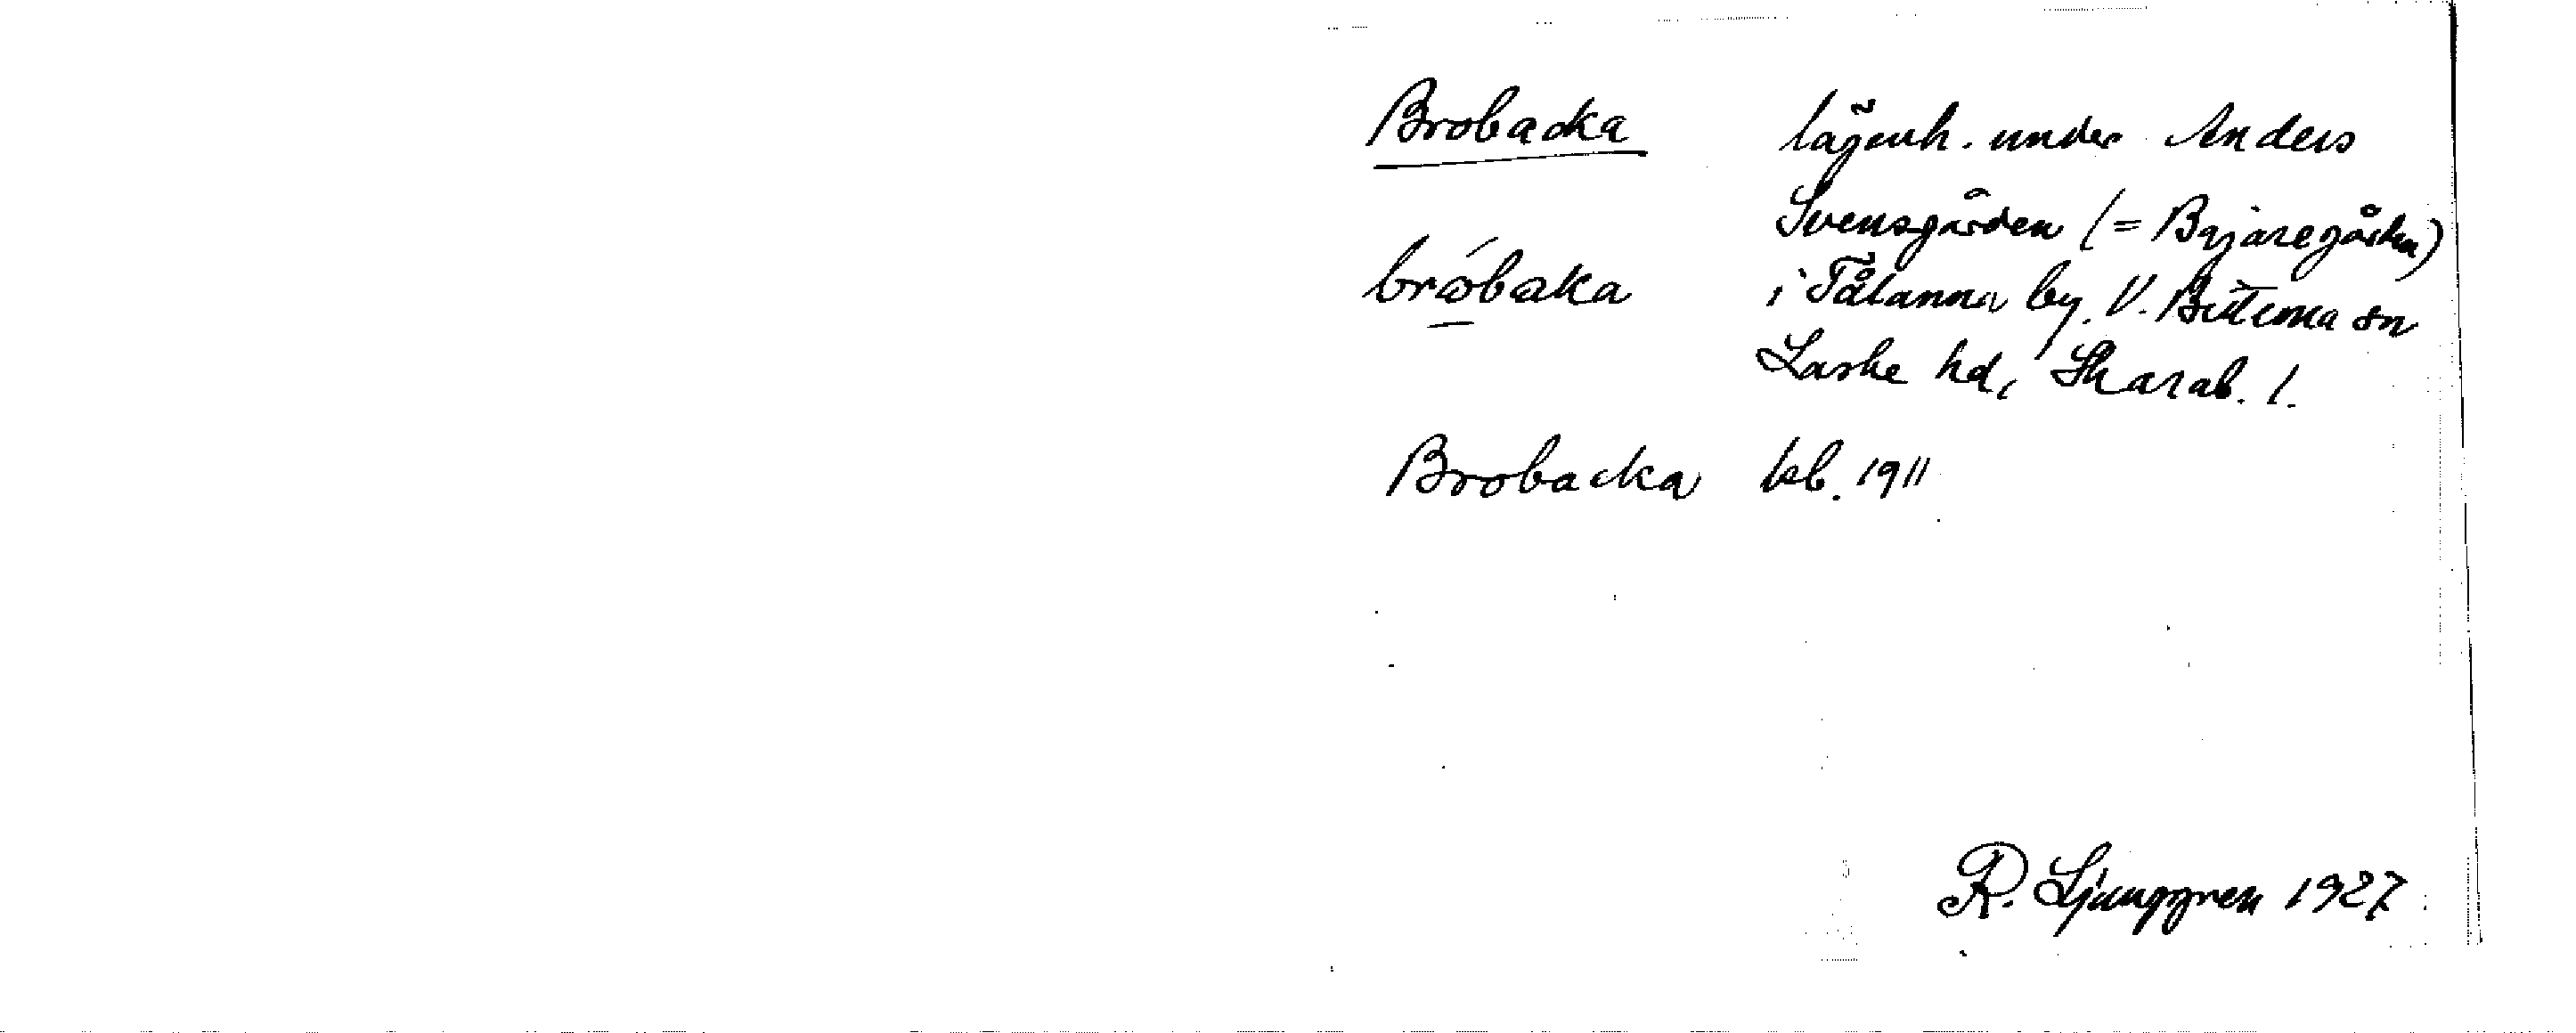 Brobacka lägenh. under Anders
Svensgården (= Bqjaregården)
bróbaka i Tålanna by. V. Bitterna sn
Laske hd, Skarab. l.
Brobacka kb. 1911
R. Ljunggren 1927